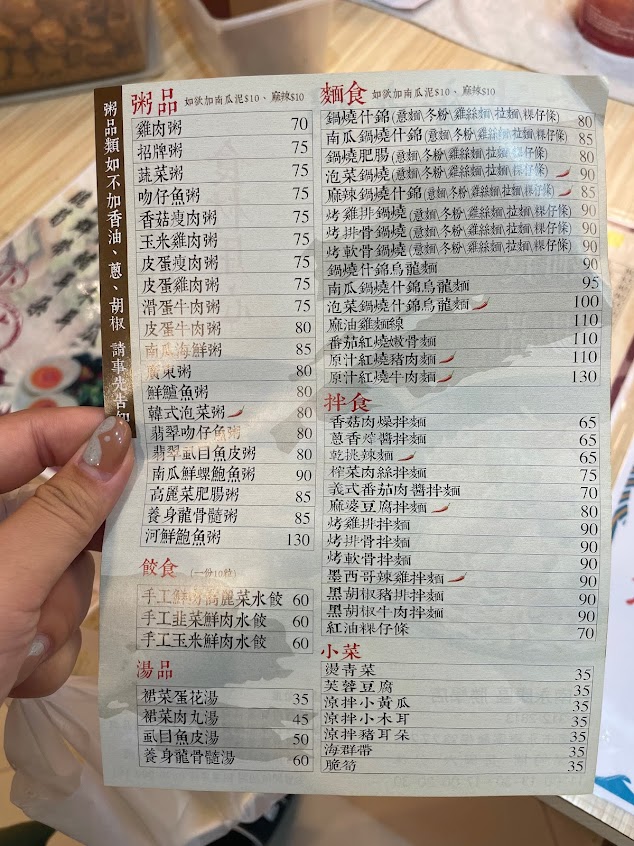 粥品類如不加香油、蔥、胡椒 請事先告知
粥品 如欲加南瓜泥$10、麻辣$10
雞肉粥 70
招牌粥 75
蔬菜粥 75
吻仔魚粥 75
香菇瘦肉粥 75
玉米雞肉粥 75
皮蛋瘦肉粥 75
皮蛋雞肉粥 75
滑蛋牛肉粥 75
皮蛋牛肉粥 80
南瓜海鮮粥 85
廣東粥 80
鮮鱸魚粥 80
韓式泡菜粥 80
翡翠吻仔魚粥 80
翡翠虱目魚皮粥 80
南瓜鮮螺鮑魚粥 90
高麗菜肥腸粥 85
養身龍骨髓粥 85
河鮮鮑魚粥 130
餃食 (一份10粒)
手工鮮肉高麗菜水餃 60
手工韭菜鮮肉水餃 60
手工玉米鮮肉水餃 60
湯品
裙菜蛋花湯 35
裙菜肉丸湯 45
虱目魚皮湯 50
養身龍骨髓湯 60
麵食 如欲加南瓜泥$10、麻辣$10
鍋燒什錦(意麵\冬粉\雞絲麵\拉麵\粿仔條) 80
南瓜鍋燒什錦(意麵\冬粉\雞絲麵\拉麵\粿仔條) 85
鍋燒肥腸(意麵\冬粉\雞絲麵\拉麵\粿仔條) 80
泡菜鍋燒(意麵\冬粉\雞絲麵\拉麵\粿仔條) 90
麻辣鍋燒什錦(意麵\冬粉\雞絲麵\拉麵\粿仔條) 85
烤雞排鍋燒(意麵\冬粉\雞絲麵\拉麵\粿仔條) 90
烤排骨鍋燒(意麵\冬粉\雞絲麵\拉麵\粿仔條) 90
烤軟骨鍋燒(意麵\冬粉\雞絲麵\拉麵\粿仔條) 90
鍋燒什錦烏龍麵 90
南瓜鍋燒什錦烏龍麵 95
泡菜鍋燒什錦烏龍麵 100
麻油雞麵線 110
番茄紅燒嫩骨麵 110
原汁紅燒豬肉麵 110
原汁紅燒牛肉麵 130
拌食
香菇肉燥拌麵 65
蔥香炸醬拌麵 65
乾挑辣麵 65
榨菜肉絲拌麵 75
義式番茄肉醬拌麵 70
麻婆豆腐拌麵 80
烤雞排拌麵 90
烤排骨拌麵 90
烤軟骨拌麵 90
墨西哥辣雞拌麵 90
黑胡椒豬排拌麵 90
黑胡椒牛肉拌麵 90
紅油粿仔條 70
小菜
燙青菜 35
芙蓉豆腐 35
涼拌小黃瓜 35
涼拌小木耳 35
涼拌豬耳朵 35
海群帶 35
脆筍 35